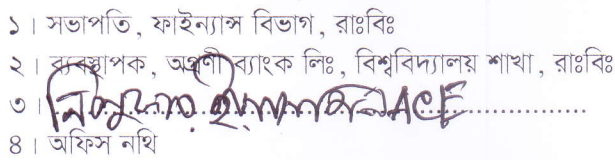 ১। সভাপতি, ফাইন্যান্স বিভাগ, রাঃবিঃ
২। ব্যবস্থাপক, অগ্রণী ব্যাংক লিঃ, বিশ্ববিদ্যালয় শাখা, রাঃবিঃ
৩। ACE
৪। অফিস নথি